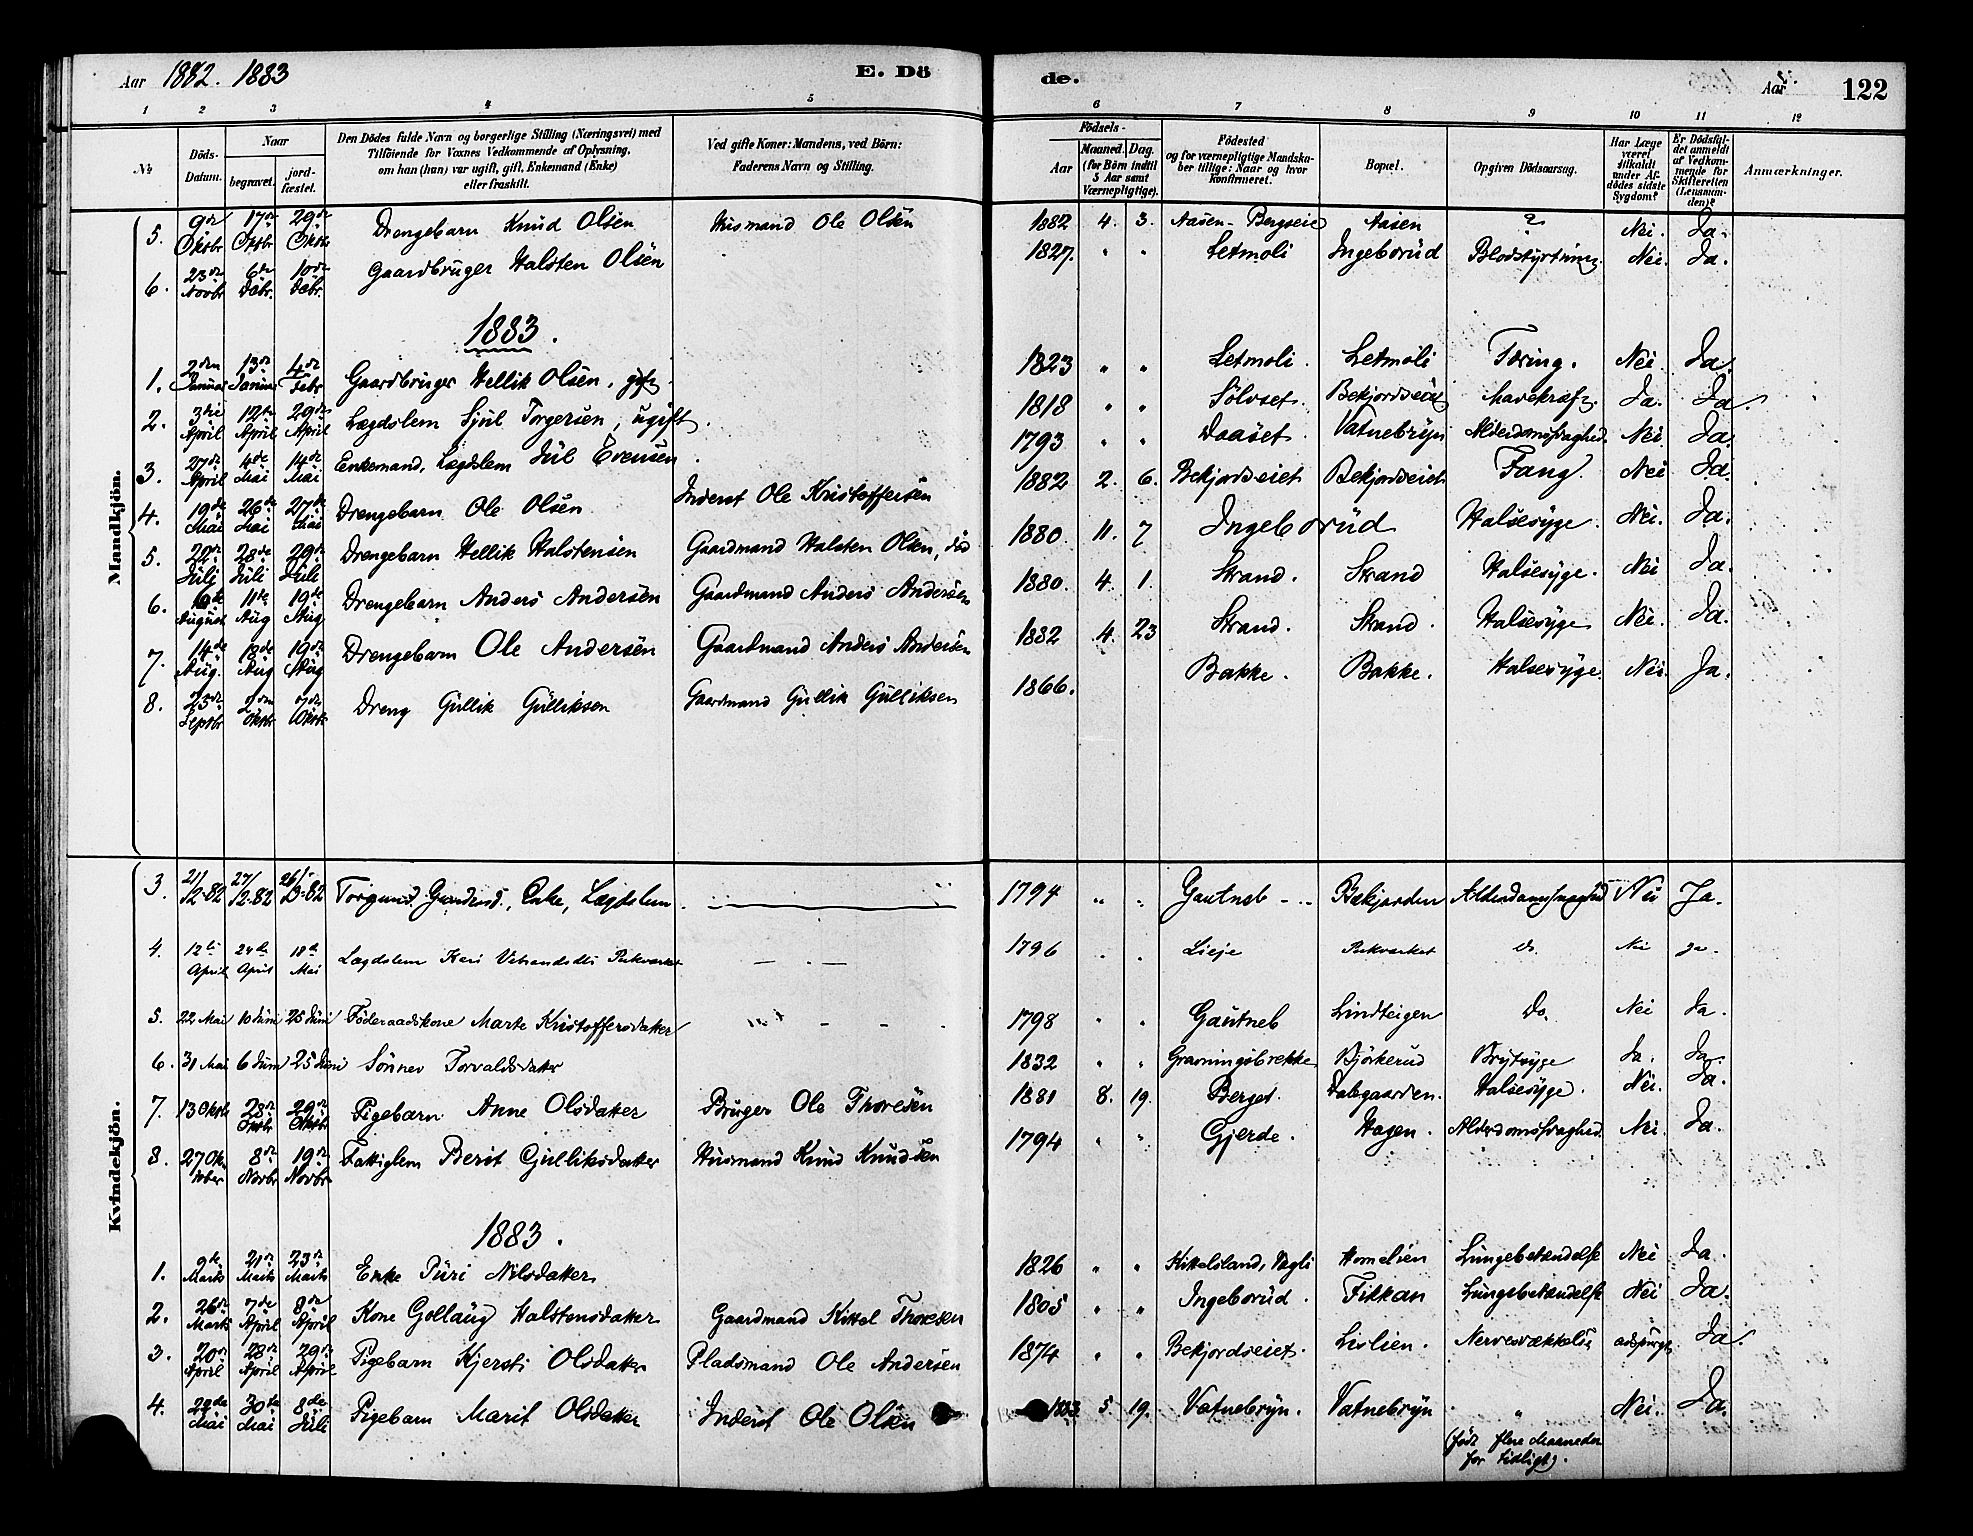 Aar 1882. 1883 E. Dö de. Aar 122
1 2 3 4 5 6 7 8 9 10 11 12
№ Döds-Datum. Naar begravet. jord-fæstet. Den Dödes fulde Navn og borgerlige Stilling (Næringsvei) med Tilföiende for Voxnes Vedkommende af Oplysning, om han (hun) var ugift, gift, Enkemand (Enke) eller fraskilt. Ved gifte Koner: Mandens, ved Börn: Faderens Navn og Stilling. Födsels- Aar Maaned. Dag. (for Börn indtil 5 Aar samt Værnepligtige). Födested og for værnepligtige Mandskaber tillige: Naar og hvor konfirmeret. Bopæl. Opgiven Dödsaarsag. Har Læge været tilkaldt under Afdödes sidste Sygdom? Er Dödsfaldet anmeldt af Vedkommende for Skifteretten (Lensmanden)? Anmærkninger.
Mandkjön.
5. 9de Oktbr 17de Oktbr 29de Oktbr Drengebarn Knud Olsen Husmand Ole Olsen 1882 4. 3. Aasen-Bergseie Aasen ? Nei. Ja.
6. 23de Novbr 6te Debr. 10de Debr. Gaardbruger Halsten Olsen 1827. " " Letmoli Ingeborud Blodstyrtning. Nei. Ja.
1883.
1. 2den Januar 13de Januar 4de Febr. Gaardbruger Hellik Olsen, gift. 1823 " " Letmoli. Letmoli Tæring. Nei. Ja.
2. 3die April 12te April 29de April Lægdslem Sjul Torgersen, ugift. 1818 " " Sölvset. Bekjordseiet Mavekræft. Ja. Ja.
3. 27de April 4de Mai 14de Mai Enkemand, Lægdslem Jül Evensen. 1793 " " Daaset. Vatnebryn Alderdomsfraghed. Nei. Ja.
4. 19de Mai 26de Mai 27de Mai Drengebarn Ole Olsen Inderst Ole Kristoffersen 1882 2. 6. Bekjordseiet Bekjordseiet Fang. Nei Ja.
5. 22de Juli 28de Juli 29de Juli Drengebarn Hellik Halstensen Gaardmand Halsten Olsen, död 1880. 11. 7 Ingeborud Halsesyge. Nei. Ja.
6. 10de August 11te Aug 19de Aug. Drengebarn Anders Andersen Gaardmand Anders Andersen 1880. 4. 1. Strand. Strand Halsesyge. Nei Ja.
7. 14de Aug. 18de Aug 19de Aug Drengebarn Ole Andersen Gaardmand Anders Andersen 1882 4. 23 Strand. Strand. Halsesyge Nei. Ja.
8. 25de Septbr 2den Oktbr 7de Oktbr Dreng Gullik Gulliksen Gaardmand Gullik Gulliksen 1866. Bakke. Bakke. Halsesyge. Nei. Ja.
Kvindekjön.
3. 21/2-82 27/2-82 26/3-82 Torgund Gundersd., Enke, Lægdslem. 1794 " " Gautneb Bækjorden Alderdomsfraghed Nei Ja.
4. 12te April 24de April 18de Mai Lægdslem Kari 1796 " " Lieje Pukværket do. Nei Ja.
5. 22 Mai 10 Juni 25 Juni Föderaadskone Marte Kristoffersdatter 1798 " " Gautneb Lindteigen Do. Nei Ja.
6. 31 Mai 6 Juni 25 Juni Sönnev Torvaldsdatter 1832 " " Gravningsbrekke Björkerud Brystsyge Ja. Ja.
7. 13 Oktbr 28de Oktbr 29de Oktbr Pigebarn Anne Olsdatter Bruger Ole Thoresen 1881 8. 19. Berget. Dalegaarden. Halsesyge. Nei. Ja.
8. 27 Oktober 8de Novbr 19de Novbr Fattiglem Berit Gulliksdatter Husmand Knud Knudsen 1794 " " Gjerde. Hagen. Alderdomsfraghed. Nei. Ja.
1883.
1. 9de Marts 21de Marts 23de Marts Enke Turi Nilsdatter 1826 " " Kittelsland, Vegli Homelien Lungebetændelse Nei Ja.
2. 26de Marts 7de April 8de April Kone Gollaug Halstensdatter Gaardmand Kittel Thoresen 1805 " " Ingeborud. Fikkan Lungebetændelse Nei Ja.
3. 20de April 28de April 29de April Pigebarn Kjersti Olsdatter Pladsmand Ole Andersen 1874 " " Bekjordseiet. Lislien. adspurgt Ja.
4. 29de Mai 30de Mai 8de Juli Pigebarn Marit Olsdatter Inderst Ole Olsen 1883 5 19. Vatnebryn. Vatnebryn " Nei. Ja.
(födt flere Maaneder
for tidligt).